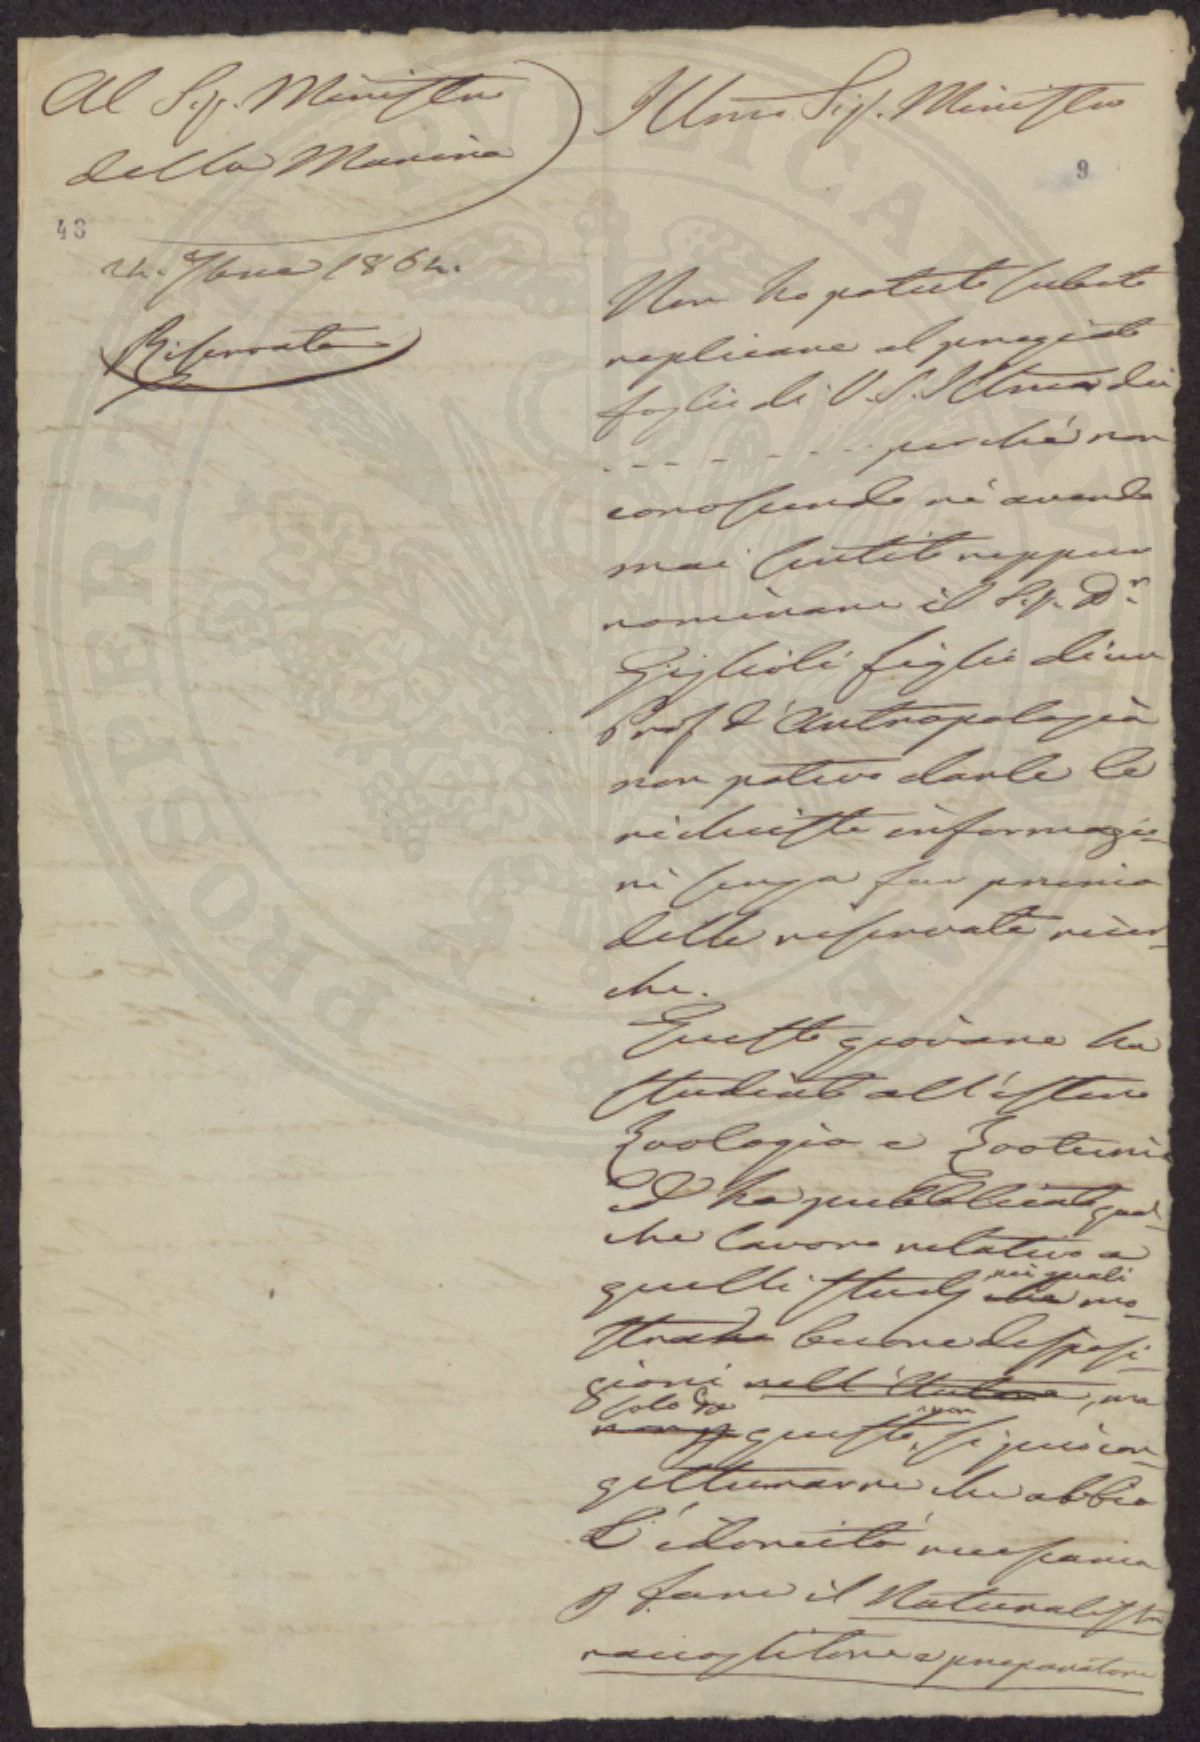 Al Sig. Ministro
della Marina
48
24. 7bre 1864.
Riservata
Illmo Sig. Ministro
9
Non ho potuto subito
replicare al pregiato
foglio di V. S. Illma del
- - - - - - - - perché non
conoscendo nè avendo
mai sentito neppur
nominare il Sig. Dr.
Giglioli figlio di un
Prof d'Antropologia
non potevo darle le
richieste informazio-
ni senza far prima
delle riservate ricer-
che.
Questo giovane ha
studiato all'estero
Zoologia e Zootomia
ed ha pubblicato qual-
che lavoro relativo a
quelli studj che nei quali mo-
strano buone disposi-
zioni nell'Autore, ma
non solo da questo, non si può con-
getturarne che abbia
l'idoneità necessaria
p fare il Naturalista
raccoglitore e preparatore
PROSPERITATI PVBLICAE